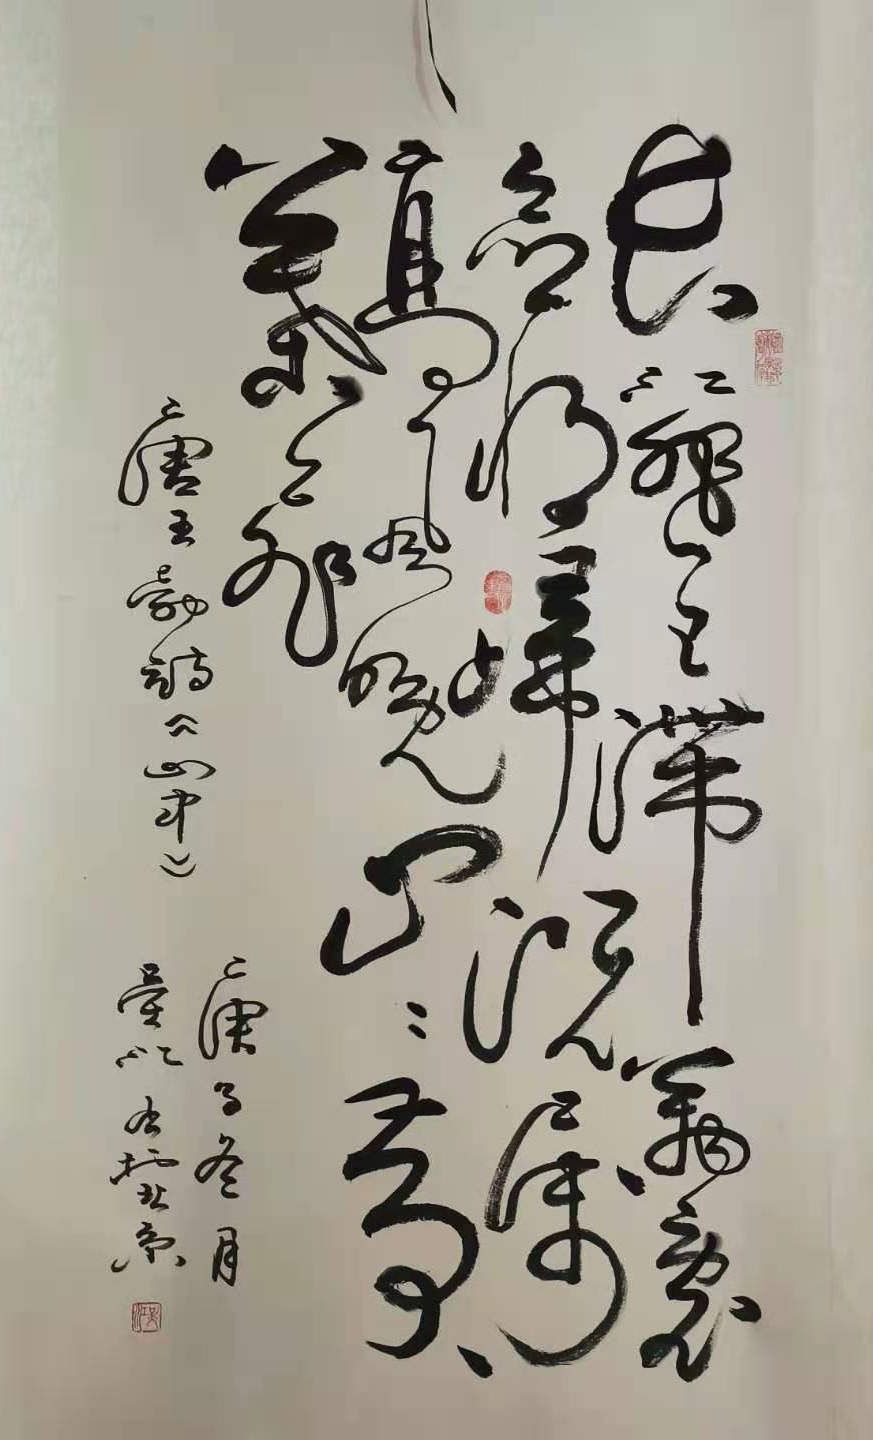 長江悲已滯萬里
念將歸況屬
高風晚山〻黄
葉飛
唐王勃詩《山中》
庚子冬月
吴江书於北京